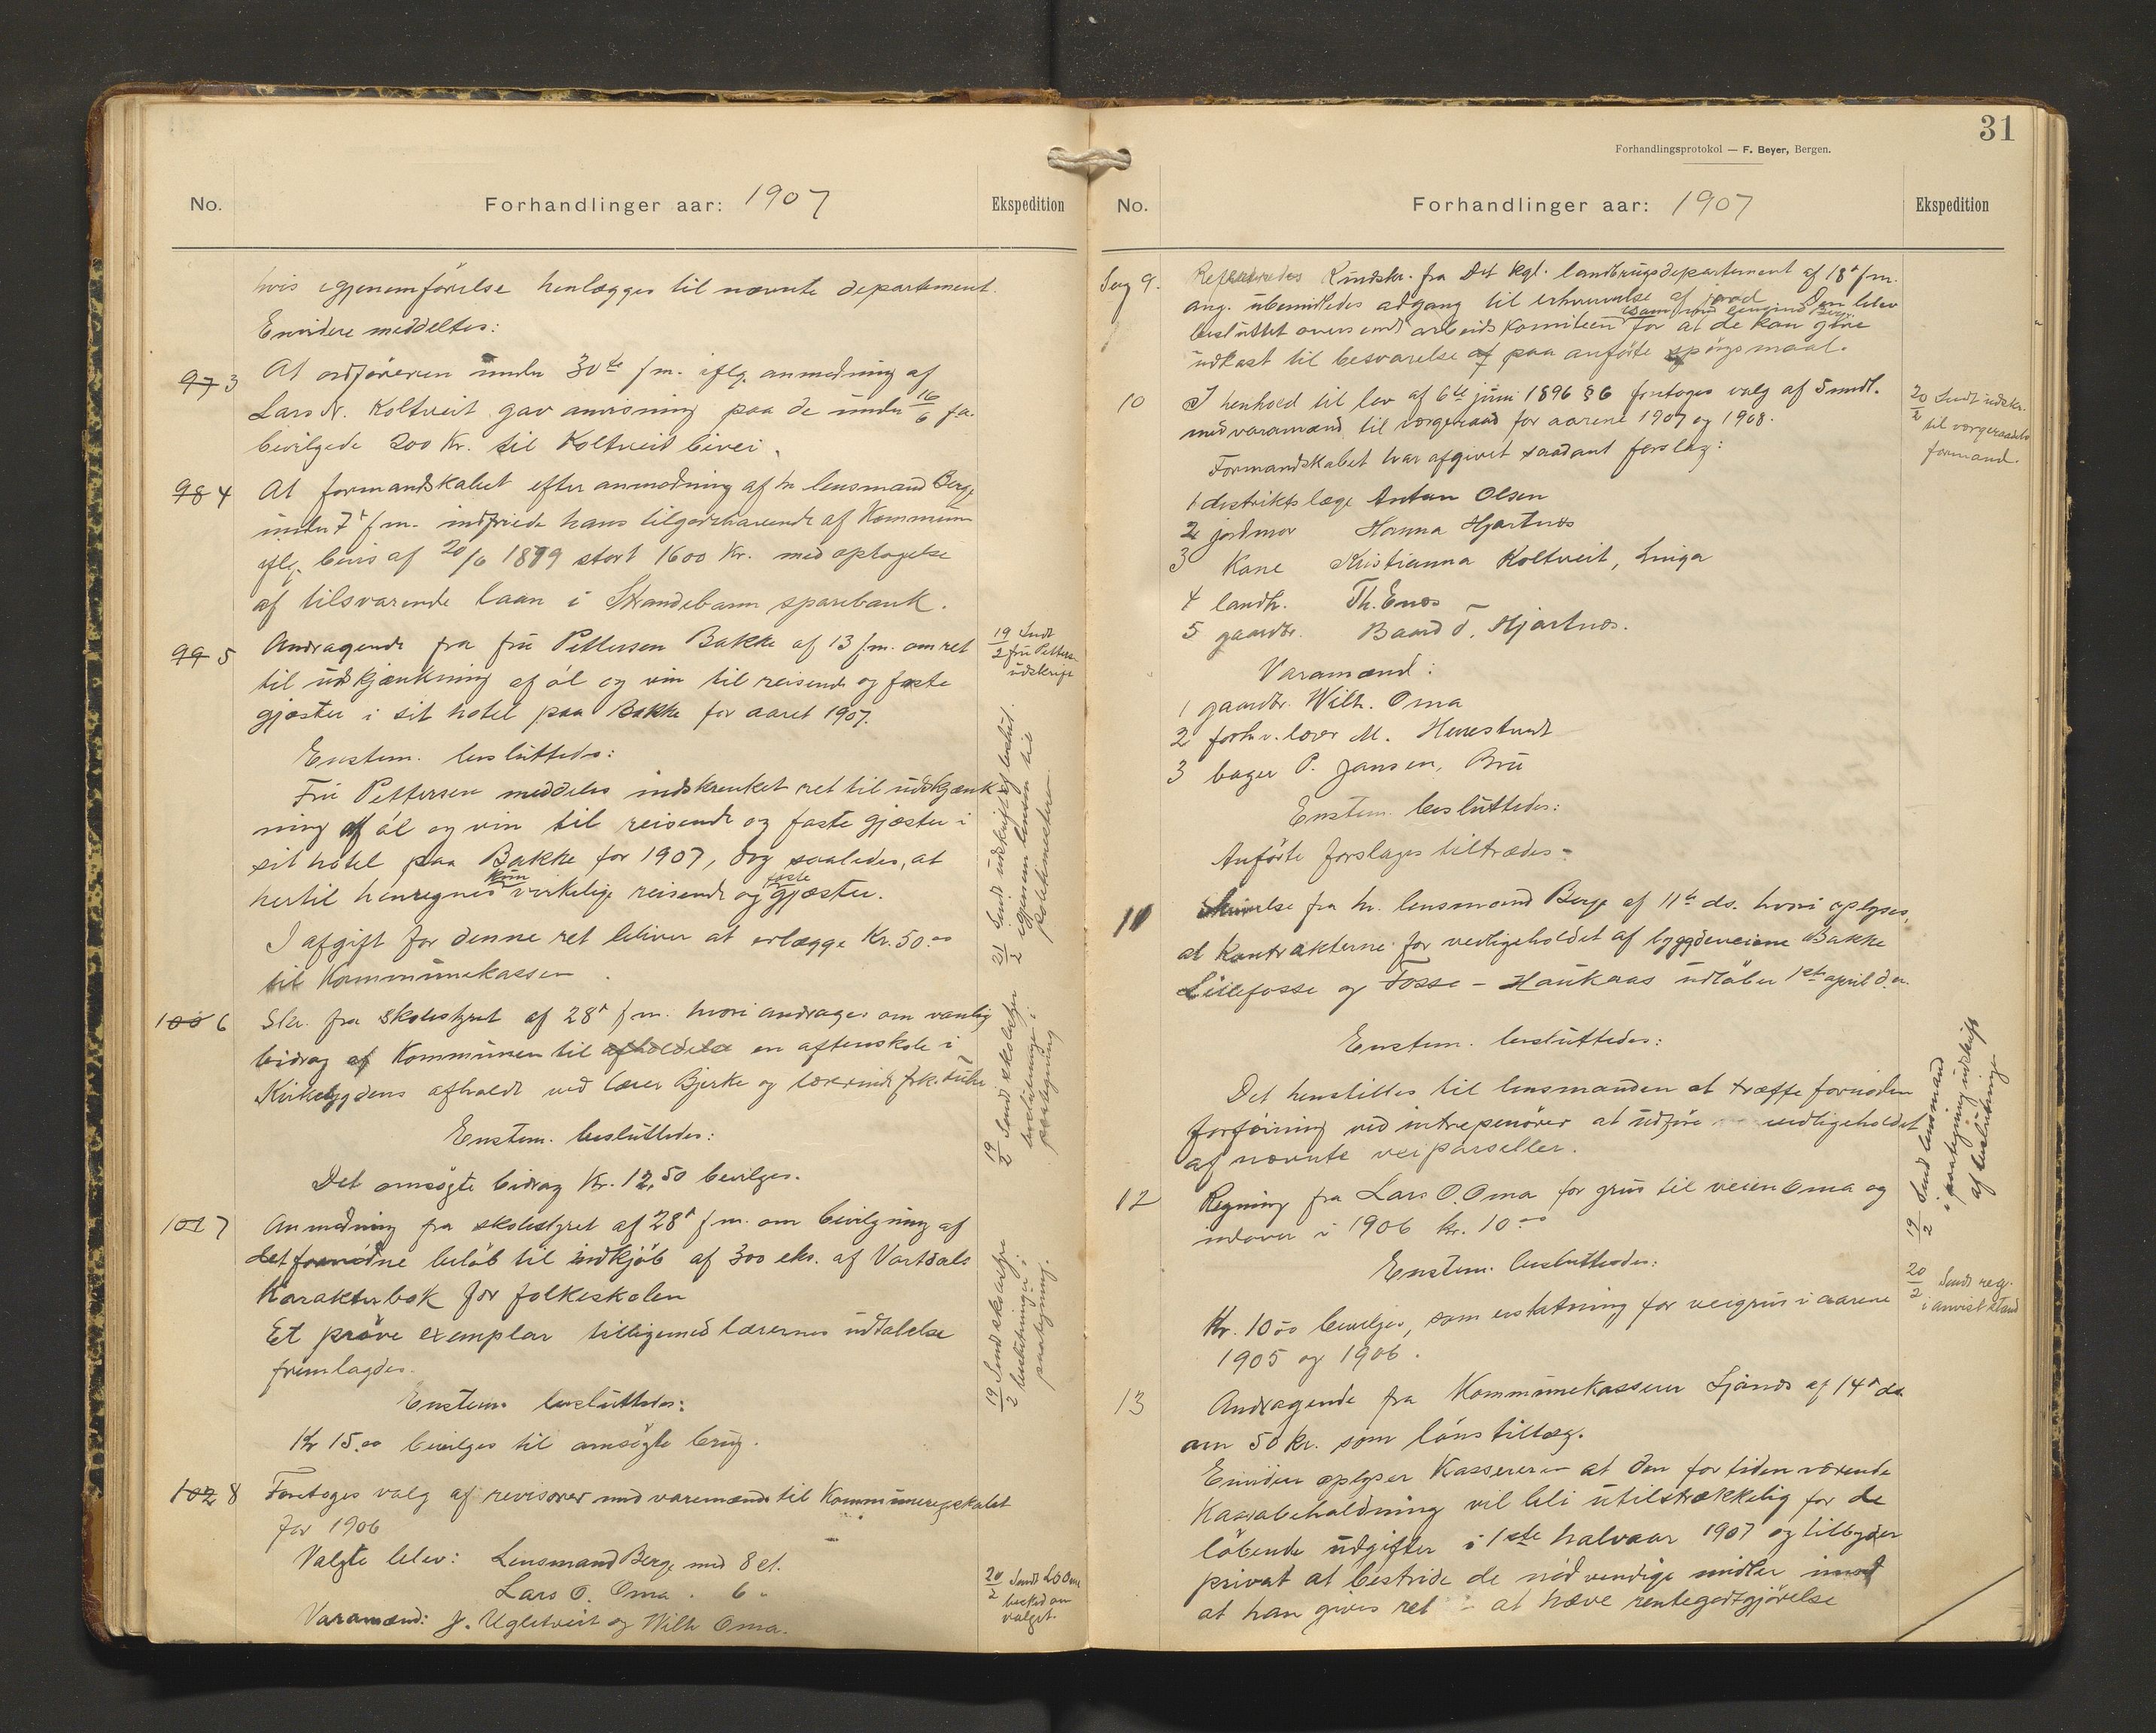 No.
Forhandlinger aar: 1907
Ekspedition
hvis gjenemförelse henlægges til nævnte departement.
Envidere meddeltes:
97 3 At ordföreren under 30te f.m. iflg. anmodning af
Lars N. Koltveit gav anvisning paa de under 16/6 f.a.
bevilgede 200 Kr. til Koltveit bivei.
98 4 At formandskabet efter anmodning af hr lensmand Berge
under 7de f.m. indfriede hans tilgodehavende af Kommunen
iflg. bevis af 20/6 1899 stort 1600 Kr. med optagelse
af tilsvarende laan i Strandebarm sparebank.
99 5 Andragende fra fru Pettersen Bakke af 13 f.m. om ret
til udskjænkning af öl og vin til reisende og faste
gjæster i sit hotel paa Bakke for aaret 1907.
19/2 Sendt
fru Petters.
udskrift
Enstem. besluttedes:
Fru Pettersen meddeles indskrenket ret til udskjænk
ning af öl og vin til reisende og faste gjæster i
sit hotel paa Bakke for 1907, dog saaledes, at
hertil henregnes kun virkelige reisende og faste gjæster.
I afgift for denne ret bliver at erlægge Kr. 50.00
til Kommunekassen.
21/2 Sendt udskrift af beslut.
igjenem lensm. til
politimesteren
100 6 Skr. fra skolestyret af 28de f.m. hvori andrages om vanlig
bidrag af Kommunen til afholdelse en aftenskole i
Kirkebygdens afholdt ved lærer Bjerke og lærerinde frk.
Enstem. besluttedes:
Det omsögte bidrag Kr. 12,50 bevilges.
19/2 Sendt skolestyre
beslutninge i
paategning
101 7 Anmodning fra skolestyret af 28de f.m. om bevilgning af
det fornödne belöb til indkjöb af 300 eks. af Vartdals
Karakterbok for folkeskolen
Et pröve exemplar tilligemed lærernes udtalelse
fremlagdes.
Enstem. besluttedes:
Kr 15.00 bevilges til omsögte brug.
19/2 Sendt skolestyre
beslutninge i
paategning.
102 8 Foretoges valg af revisorer med varamænd til Kommuneregnskabet
for 1906
Valgte blev: Lensmand Berge med 8 st.
Lars O. Oma . 6 "
Varamænd: J. Ugletveit og Wilh Oma.
20/2 Sendt L O Oma
besked om
valget.
31
Forhandlingsprotokol — F. Beyer, Bergen.
No.
Forhandlinger aar: 1907
Ekspedition
Sag 9. Refereredes Rundskr. fra Det kgl. landbrugsdepartement af 18de f.m.
ang. ubemidledes adgang til erhvervelse af jord. Den blev
besluttet oversendt arbeidskomiteen for at de kan give
udkast til besvarelse af paa anförte spörgsmaal.
10 I henhold til lov af 6te juni 1896 § 6 foretoges valg af 5 medl.
med varamænd til vorgeraad for aarene 1907 og 1908.
Formandskabet har afgivet saadant forslag:
20/2 Sendt udskr.
til vorgeraadets
formand.
1 distriktslæge Anton Olsen
2 jordmor Hanna Hjartnes
3 Kone Kristianna Koltveit, Linga
4 landh. Th. Enes
5 gaardbr. Baard T. Hjartnes.
Varamænd:
1 gaardbr. Wilh. Oma
2 forhv. lærer M. Herrestvedt
3 bager P. Jansen, Bru
Enstem. besluttedes:
Anförte forslages tiltrædes.
11 Skrivelse fra hr. lensmand Berge af 11te ds. hvori oplyses,
at Kontrakterne for vedligeholdet af bygdeveiene Bakke
Lillefosse og Fosse - Haukaas udlöber 1ste april d.a.
Enstem. besluttedes:
Det henstilles til lensmanden at træffe fornöden
forföining ved intrepenörer at udföre vedligeholdet
af nævnte veiparseller.
19/2 Sendt lensmand
i paategning udskrift
af beslutninge
12 Regning fra Lars O. Oma for grus til veien Oma og
indover i 1906 kr. 10.00
Enstem. besluttedes:
Kr. 10.00 bevilges, som erstatning for veigrus i aarene
1905 og 1906.
20/2 Sendt reg.
i anvist stand
13 Andragende fra Kommunekasserer Ljønes af 14de ds
om 50 kr. som lönstillæg.
Envidere oplyser Kassereren at den for tiden værende
Kassabeholdning vil bli utilstrækkelig for de
löbende udgifter i 1ste halvaar 1907 og tilbyder
privat at bestride de nödvendige midler imod
at han gives ret - at hæve rentegodtgjörelse